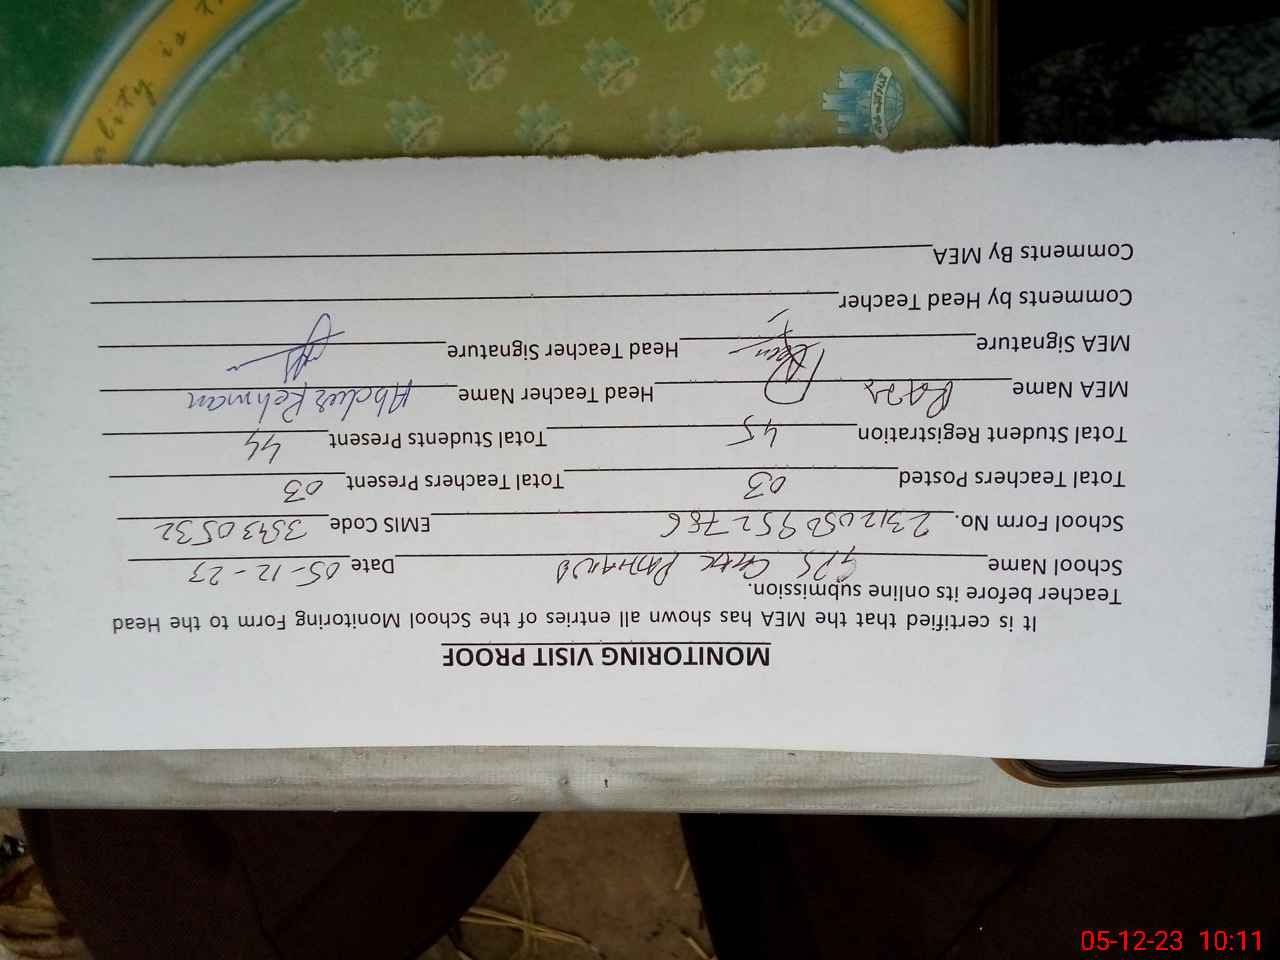 MONITORING VISIT PROOF
It is certified that the MEA has shown all entries of the School Monitoring Form to the Head
Teacher before its online submission.
School Name GPS Date 05-12-23
School Form No. 2312050952786 EMIS Code 35930532
Total Teachers Posted 03 Total Teachers Present 03
Total Student Registration 45 Total Students Present 44
MEA Name Head Teacher Name Abdul Rehman
MEA Signature Head Teacher Signature
Comments by Head Teacher
Comments By MEA
05-12-23 10:11